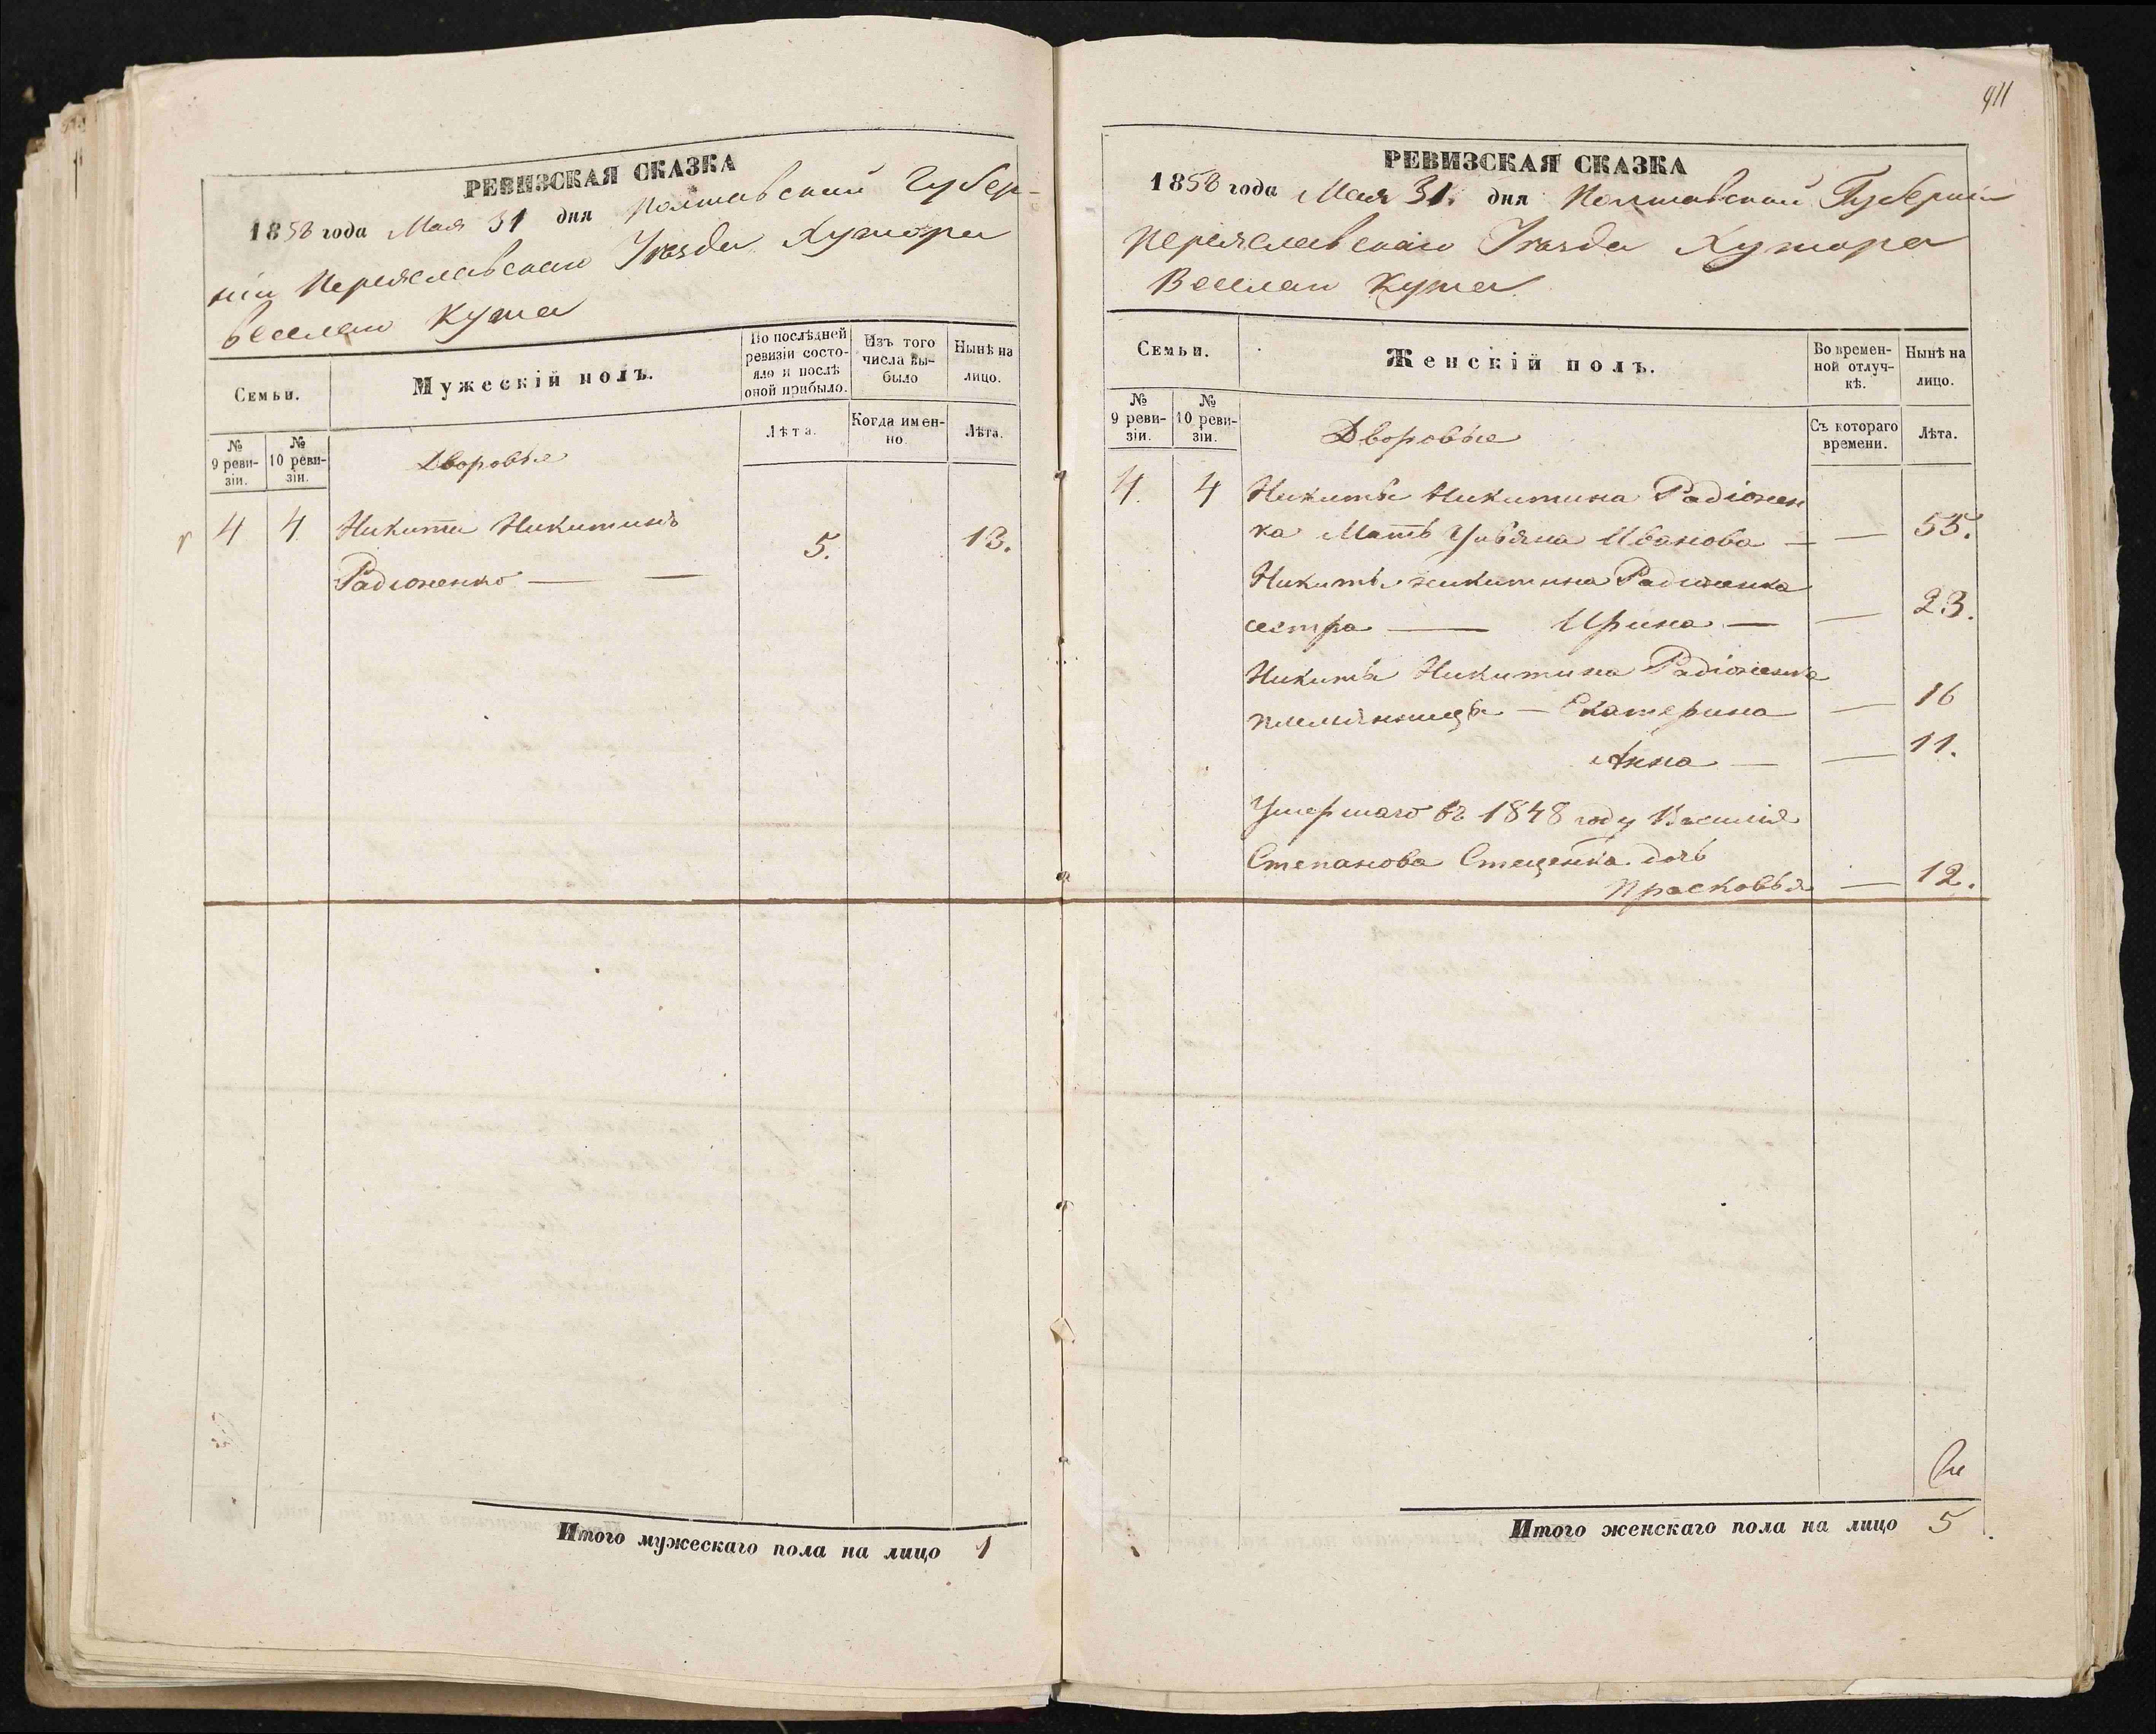 РЕВИЗСКАЯ СКАЗКА
1858 года Мая 31 дня Полтавской Губер-
ніи Переяславскаго Уѣзда Хутора
Веселаго Кута
Семьи.
Мужескій полъ.
По послѣдней ревизіи состояло и послѣ оной прибыло.
Изъ того числа выбыло
Нынѣ на лицо.
№ 9 ревизіи.
№ 10 ревизіи.
Лѣта.
Когда именно.
Лѣта.
Дворовые
4 4 Никита Никитинъ
Радіоненко — — 5. 13.
Итого мужескаго пола на лицо 1
911
РЕВИЗСКАЯ СКАЗКА
1858 года Мая 31. дня Полтавской Губерніи
Переяславскаго Уѣзда Хутора
Веселаго Кута
Семьи.
Женскій полъ.
Во временной отлучкѣ.
Нынѣ на лицо.
№ 9 ревизіи.
№ 10 ревизіи.
Съ котораго времени.
Лѣта.
Дворовые
4. 4 Никиты Никитина Радіонен
ка Мать Ульяна Иванова — — 55.
Никиты Никитина Радіоненка
сестра — Ирина — — 23.
Никиты Никитина Радіоненка
племянницы — Екатерина — 16
Анна — — 11.
Умершаго въ 1848 году Василія
Степанова Стеценка дочь
Прасковья — 12.
Итого женскаго пола на лицо 5